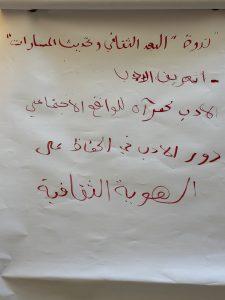 "ندوة "البعد الثقافي وتحديث المسارات
- تعريف الأدب
الأدب كمرآة للواقع الاجتماعي
دور الأدب في الحفاظ على
الهوية الثقافية